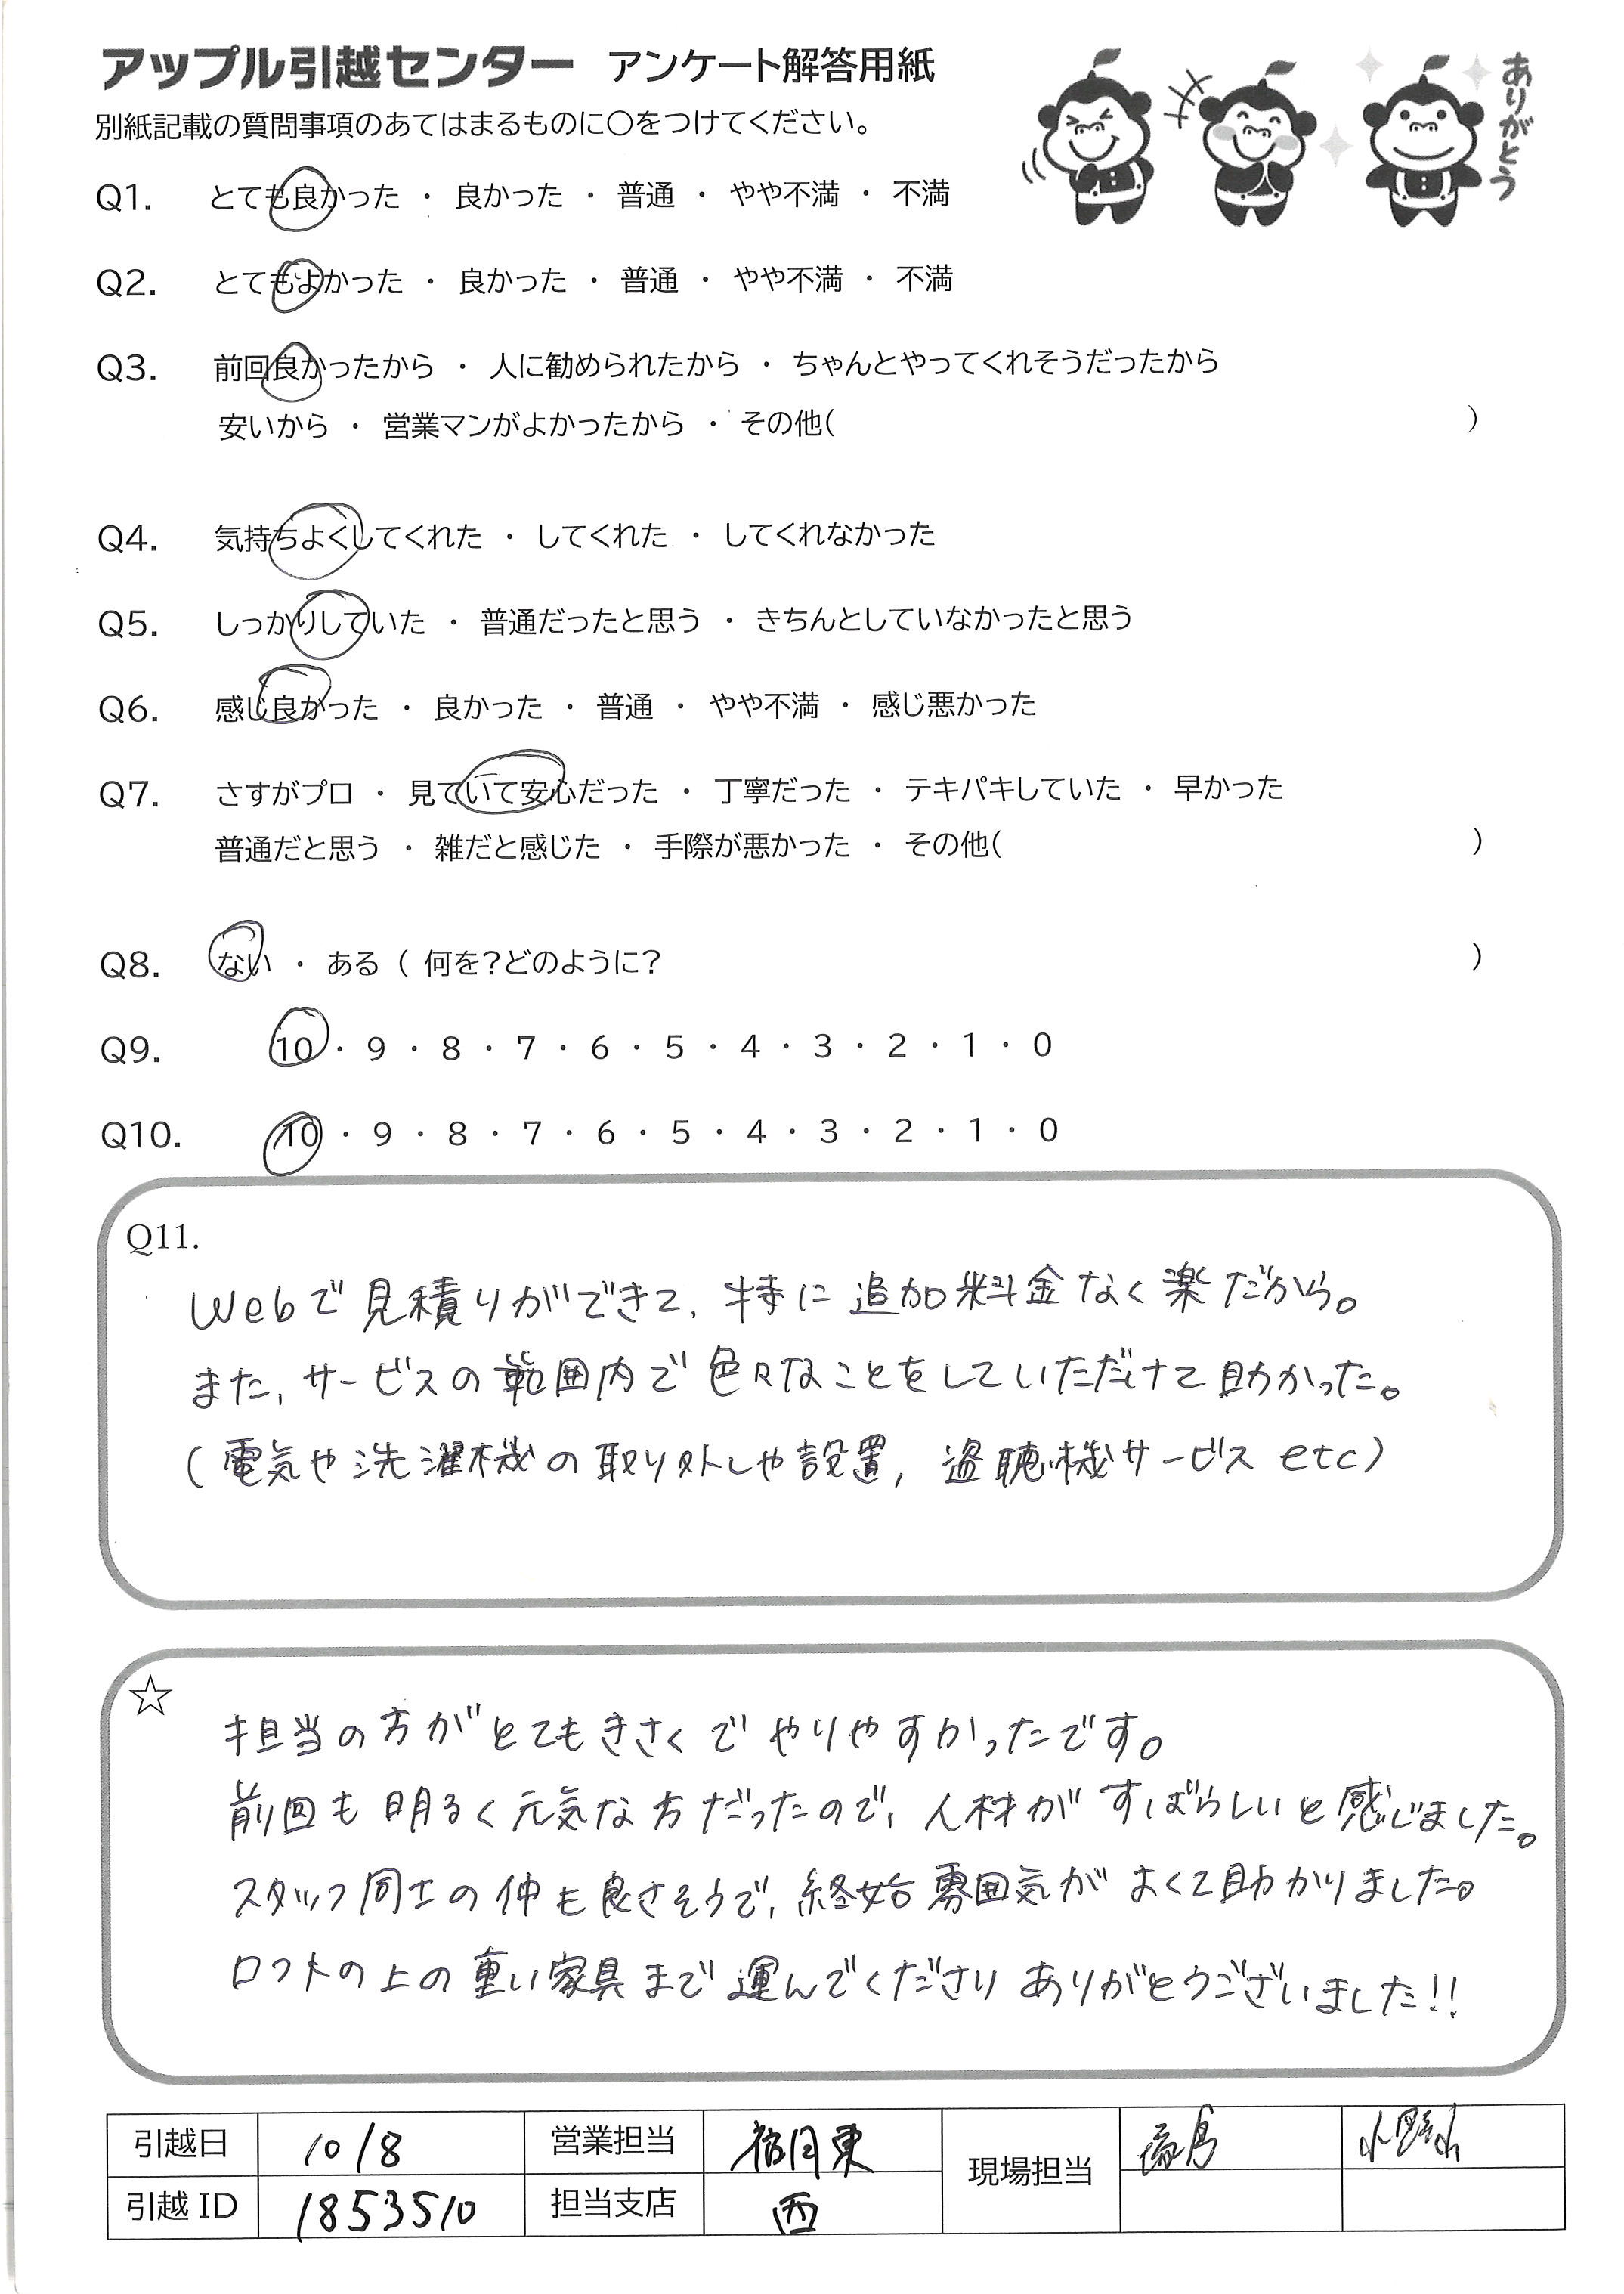 アップル引越センター アンケート解答用紙
ありがとう
別紙記載の質問事項のあてはまるものに○をつけてください。
Q1. とても良かった ・ 良かった ・ 普通 ・ やや不満 ・ 不満
Q2. とてもよかった ・ 良かった ・ 普通 ・ やや不満 ・ 不満
Q3. 前回良かったから ・ 人に勧められたから ・ ちゃんとやってくれそうだったから
安いから ・ 営業マンがよかったから ・ その他( )
Q4. 気持ちよくしてくれた ・ してくれた ・ してくれなかった
Q5. しっかりしていた ・ 普通だったと思う ・ きちんとしていなかったと思う
Q6. 感じ良かった ・ 良かった ・ 普通 ・ やや不満 ・ 感じ悪かった
Q7. さすがプロ ・ 見ていて安心だった ・ 丁寧だった ・ テキパキしていた ・ 早かった
普通だと思う ・ 雑だと感じた ・ 手際が悪かった ・ その他( )
Q8. ない ・ ある ( 何を?どのように? )
Q9. 10 ・ 9 ・ 8 ・ 7 ・ 6 ・ 5 ・ 4 ・ 3 ・ 2 ・ 1 ・ 0
Q10. 10 ・ 9 ・ 8 ・ 7 ・ 6 ・ 5 ・ 4 ・ 3 ・ 2 ・ 1 ・ 0
Q11.
Webで見積りができて、特に追加料金なく楽だから。
また、サービスの範囲内で色々なことをしていただけて助かった。
(電気や洗濯機の取り外しや設置, 盗聴機サービス etc)
☆
担当の方がとてもきさくでやりやすかったです。
前回も明るく元気な方だったので、人材がすばらしいと感じました。
スタッフ同士の仲も良さそうで、終始雰囲気がよくて助かりました。
ロフトの上の重い家具まで運んでくださりありがとうございました!!
引越日 10/8 営業担当 現場担当
引越ID 1853510 担当支店 西